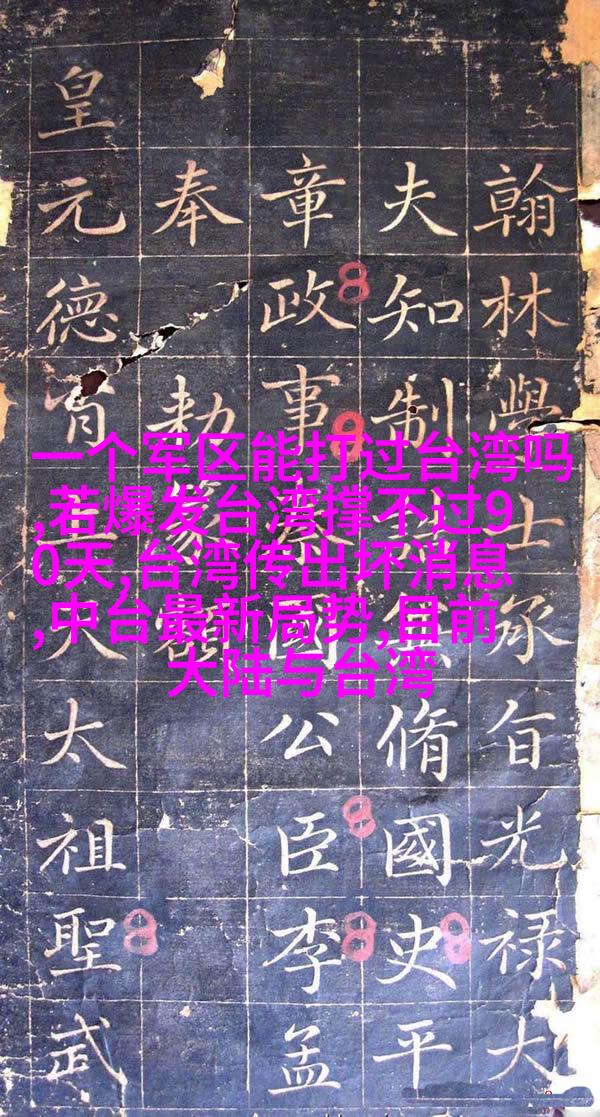 一个军区能打过台湾吗
,若爆发台湾撑不过9
0天,台湾传出坏消息
,中台最新局势,目前
大陆与台湾
翰林學士承旨光禄大
夫知制脩國史平
章政事國公臣李孟
奉勅篆
皇元德大太祖聖武